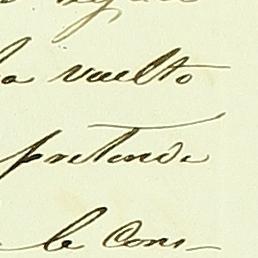 la vuelto
pretende
le cons-